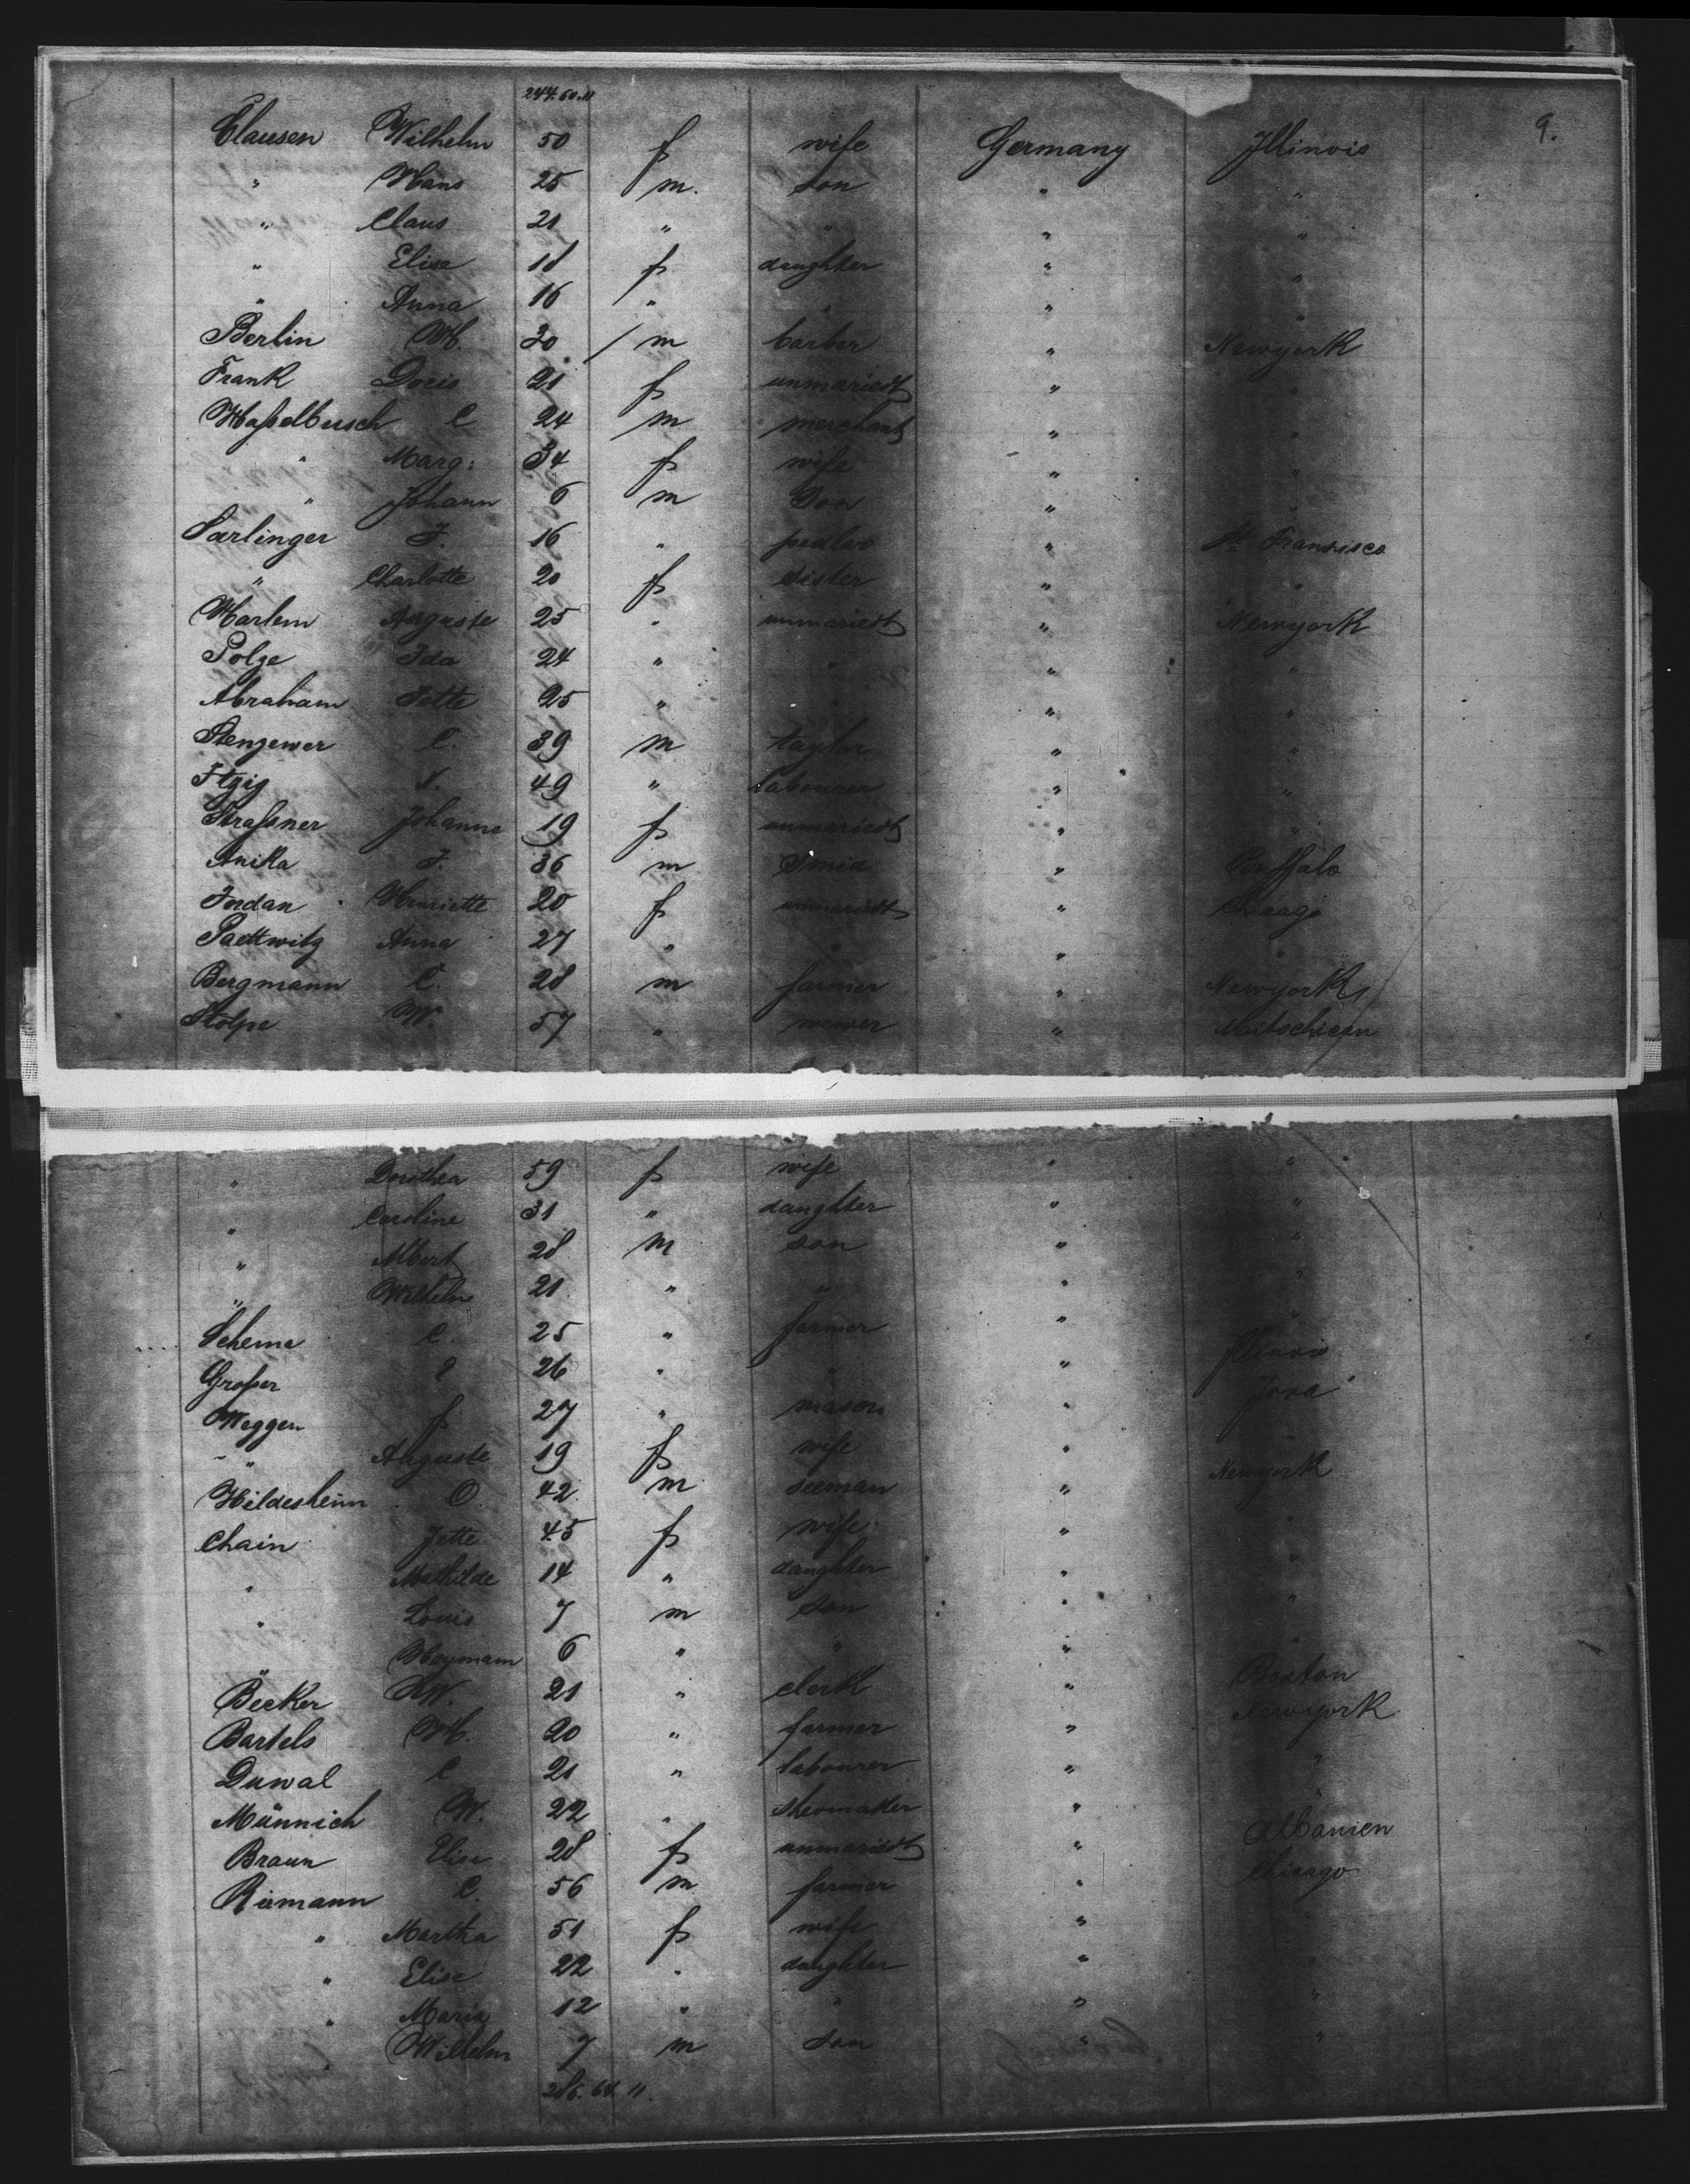 244. 60. 11
9.
Clausen Wilhelm 50 f wife Germany Illinois
" Hans 25 m. son " "
" Claus 21 " " " "
" Elise 18 f daughter " "
" Anna 16 " " " "
Berlin H. 20 / m barber " Newyork
Frank Doris 21 f unmariedt " "
Haßelbusch C 24 m merchant " "
" Marg: 34 f wife " "
" Johann 6 m son " "
Sarlinger J. 16 " " Francisco
" Charlotte 20 f sister " "
Harlem Auguste 25 " unmariedt " Newyork
Polze Ida 24 " " " "
Abraham Jette 25 " " " "
Stenzewer C. 39 m taylor " "
Itzig N. 49 " labourer " "
Straßner Johanne 19 f unmariedt " "
Anika J. 36 m Smid " Buffalo
Jordan Henriette 20 f unmariedt " Chicago
Paettwitz Anna 27 " " " "
Bergmann C. 28 m farmer " Newyork
Stolpe W. 57 " wewer " Mitschican
" Dorothea 59 f wife " "
" Caroline 31 " daughter " "
" Albert 28 m son " "
" Wilhelm 21 " " " "
Scheme C. 25 " farmer " Illinois
Großer 26 " " " Jova
Weggen f 27 " mason " "
" Auguste 19 f wife " Newyork
Hildesheim O. 42 m seeman " "
Chain Jette 45 f wife " "
" Mathilde 14 " daughter " "
" Louis 7 m son " "
" Heymann 6 " " " "
Becker W. 21 " clerk " Boston
Bartels H. 20 " farmer " Newyork
Duwal C 21 " labourer " "
Münnich W. 22 " shoemaker " "
Braun Elise 28 f unmariedt " Albanien
Riemann C. 56 m farmer " Chicago
" Martha 51 f wife " "
" Elise 22 " daughter " "
" Maria 12 " " " "
" Wilhelm 7 m son " "
286. 64. 11.